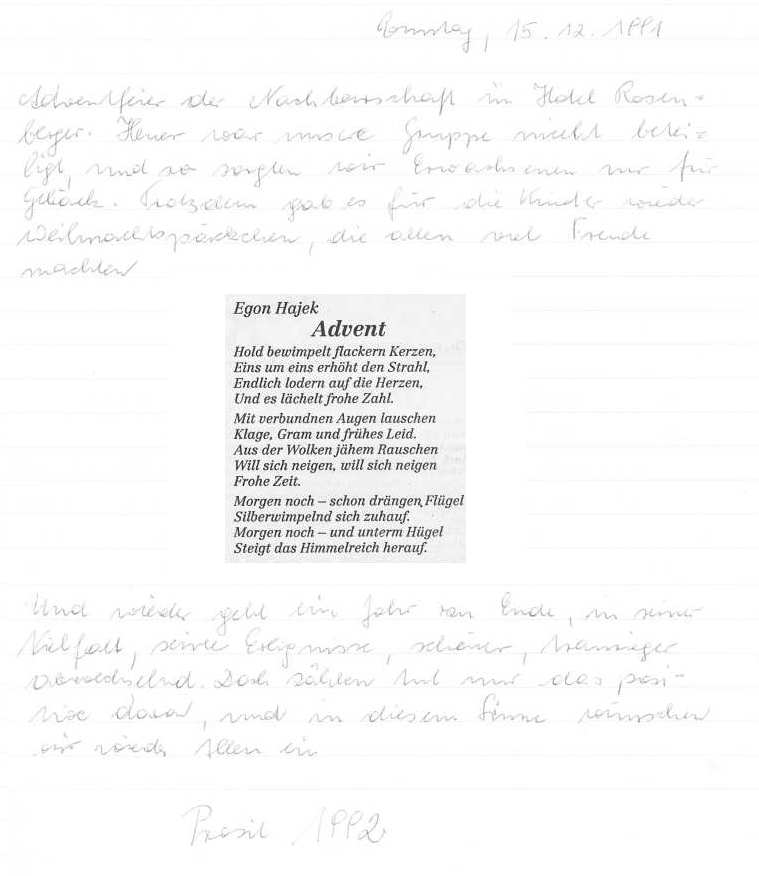 Sonntag, 15.12.1991
Adventfeier der Nachbarschaft im Hotel Rosen-
berger. Heuer war unsere Gruppe nicht betei=
ligt, und so sorgten wir Erwachsenen nur für
Gebäck. Trotzdem gab es für die Kinder wieder
Weihnachtspäckchen, die allen viel Freude
machten
Egon Hajek
Advent
Hold bewimpelt flackern Kerzen,
Eins um eins erhöht den Strahl,
Endlich lodern auf die Herzen,
Und es lächelt frohe Zahl.
Mit verbundnen Augen lauschen
Klage, Gram und frühes Leid.
Aus der Wolken jähem Rauschen
Will sich neigen, will sich neigen
Frohe Zeit.
Morgen noch – schon drängen Flügel
Silberwimpelnd sich zuhauf.
Morgen noch – und unterm Hügel
Steigt das Himmelreich herauf.
Und wieder geht ein Jahr von Ende, in seiner
Vielfalt, seiner Ereignisse, schöner, trauriger
abwechselnd. Doch zählen tut nur das posi-
tive davon, und in diesem Sinne wünschen
wir wieder Allen ein
Prosit 1992